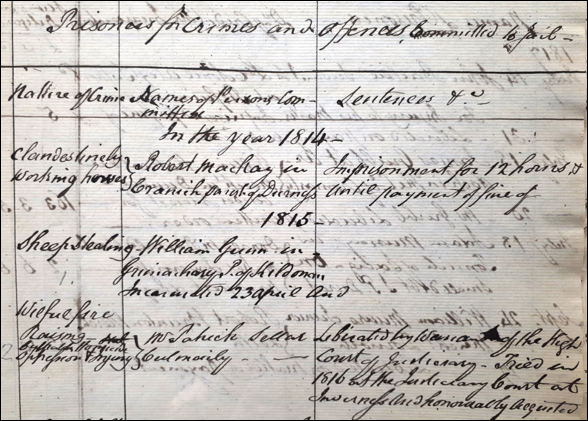 Prisoners for Crimes and offences Committed to Jail -
Nature of Crime
Names of Persons Com-
mitted
Sentences &c
In the year 1814 -
Clandestinely
working horses
Robert Mackay in
Cranich parish of Durness
Imprisonment for 12 hours &
until payment of fine of
1815 -
Sheep Stealing -
William Gunn in
P. of Kildonan
Incarcerated 23 april And
Wilful fire
Raising
Oppression
Mr Patrick Sellar
Culmaily
Liberated by Warrant of the High
Court of Justiciary - Tried in
1816 at the Justiciary Court at
Inverness and honourably acquitted